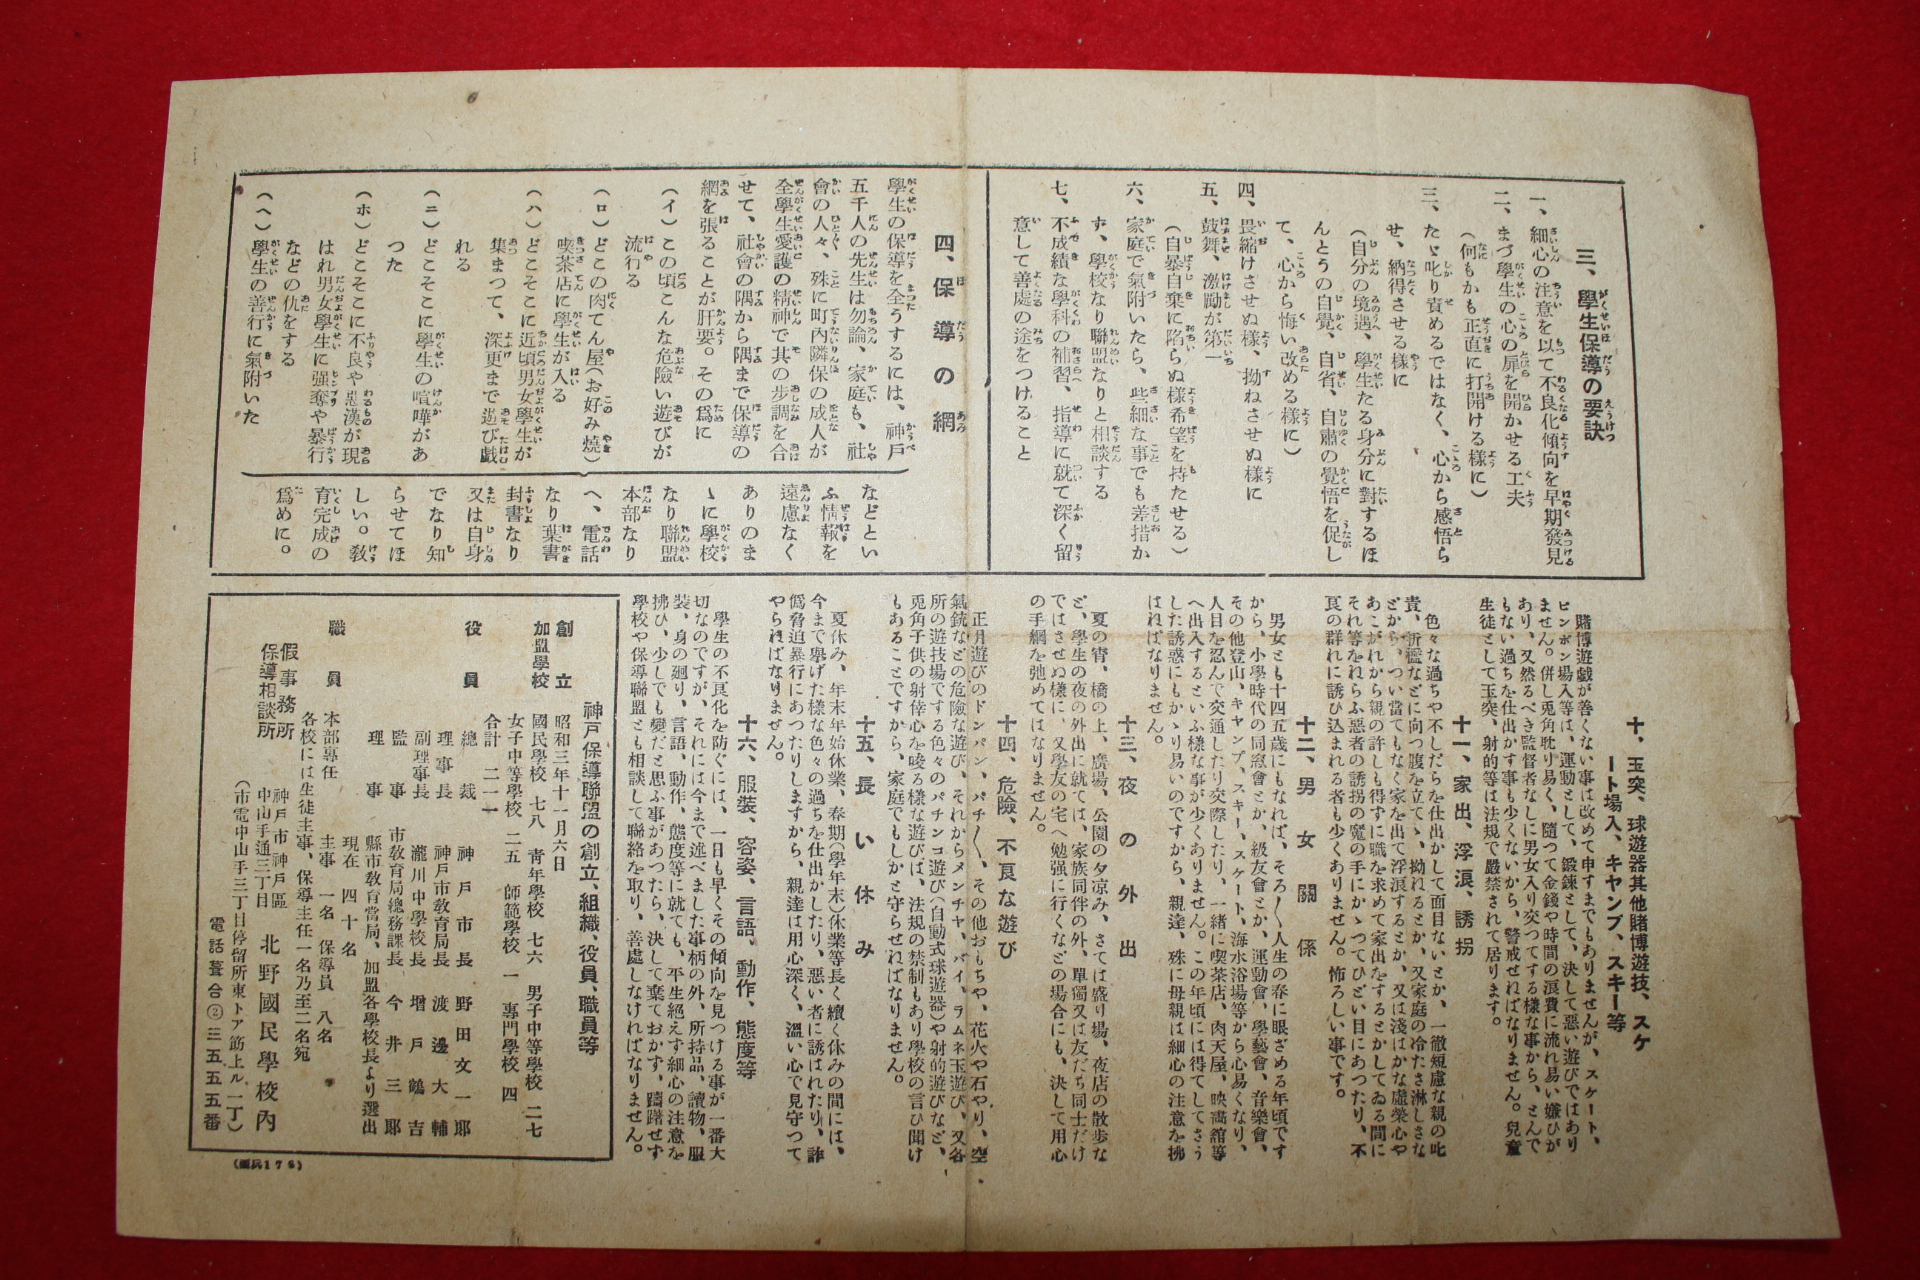 三、學生保導の要訣
一、細心の注意を以て不良化傾向を早期發見
二、まづ學生の心の扉を開かせる工夫
(何もかも正直に打開ける樣に)
三、たゞ叱り責めるではなく、心から感悟ら
せ、納得させる樣に
(自分の境遇、學生たる身分に對するほ
んとうの自覺、自省、自肅の覺悟を促し
て、心から悔い改める樣に)
四、畏縮けさせぬ樣、拗ねさせぬ樣に
五、鼓舞、激勵が第一
(自暴自棄に陷らぬ樣希望を持たせる)
六、家庭で氣附いたら、些細な事でも差措か
ず、學校なり聯盟なりと相談する
七、不成績な學科の補習、指導に就て深く留
意して善處の途をつけること
四、保導の網
學生の保導を全うするには、神戸
五千人の先生は勿論、家庭も、社
會の人々、殊に町內隣保の成人が
全學生愛護の精神で其の步調を合
せて、社會の隅から隅まで保導の
網を張ることが肝要。その爲に
(イ)この頃こんな危險い遊びが
流行る
(ロ)どこの肉てん屋(お好み燒)
喫茶店に學生が入る
(ハ)どこそこに近頃男女學生が
集まつて、深更まで遊び戲
れる
(ニ)どこそこに學生の喧嘩があ
つた
(ホ)どこそこに不良や惡漢が現
はれ男女學生に强奪や暴行
などの仇をする
(ヘ)學生の善行に氣附いた
などとい
ふ情報を
遠慮なく
ありのま
ゝに學校
なり聯盟
本部なり
へ、電話
なり葉書
封書なり
又は自身
でなり知
らせてほ
しい。敎
育完成の
爲めに。
十、玉突、球遊器其他賭博遊技、スケ
ート場入、キヤンプ、スキー等
賭博遊戲が善くない事は改めて申すまでもありませんが、スケート、
ピンポン場入等は、運動として、鍛鍊として、決して惡い遊びではあり
ません。併し兎角耽り易く、隨つて金錢や時間の浪費に流れ易い嫌ひが
あり、又然るべき監督者なしに男女入り交つてする樣な事から、とんで
もない過ちを仕出かす事も少くないから、警戒せねばなりません。兒童
生徒として玉突、射的等は法規で嚴禁されて居ります。
十一、家出、浮浪、誘拐
色々な過ちや不しだらを仕出かして面目ないとか、一徹短慮な親の叱
責、折檻などに向つ腹を立てゝ、拗れるとか、又家庭の冷たさ淋しさな
どから、つい當てもなく家を出て浮浪するとか、又は淺はかな虛榮心や
あこがれから親の許しも得ずに職を求めて家出をするとかしてゐる間に
それ等をねらふ惡者の誘拐の魔の手にかゝつてひどい目にあつたり、不
良の群れに誘ひ込まれる者も少くありません。怖ろしい事です。
十二、男女關係
男女とも十四五歲にもなれば、そろ〳〵人生の春に眼ざめる年頃です
から、小學時代の同窓會とか、級友會とか、運動會、學藝會、音樂會、
その他登山、キヤンプ、スキー、スケート、海水浴場等から心易くなり、
人目を忍んで交通したり交際したり、一緒に喫茶店、肉天屋、映畵館等
へ出入するといふ樣な事が少くありません。この年頃には得てしてさう
した誘惑にもかゝり易いのですから、親達、殊に母親は細心の注意を拂
はねばなりません。
十三、夜の外出
夏の宵、橋の上、廣場、公園の夕凉み、さては盛り場、夜店の散步な
ど、學生の夜の外出に就ては、家族同伴の外、單獨又は友だち同士だけ
ではさせぬ樣に、又學友の宅へ勉强に行くなどの場合にも、決して用心
の手綱を弛めてはなりません。
十四、危險、不良な遊び
正月遊びのドンパン、パチ〳〵、その他おもちや、花火や石やり、空
氣銃などの危險な遊び、それからメンチヤ、バイ、ラムネ玉遊び、又各
所の遊技場でする色々のパチンコ遊び(自動式球遊器)や射的遊びなど、
兎角子供の射倖心を唆る樣な遊びは、法規の禁制もあり學校の言ひ聞け
もあることですから、家庭でもしかと守らせねばなりません。
十五、長い休み
夏休み、年末年始休業、春期(學年末)休業等長く續く休みの間には、
今まで擧げた樣な色々の過ちを仕出かしたり、惡い者に誘はれたり、詐
僞脅迫暴行にあつたりしますから、親達は用心深く、溫い心で見守つて
やらねばなりません。
十六、服裝、容姿、言語、動作、態度等
學生の不良化を防ぐには、一日も早くその傾向を見つける事が一番大
切なのですが、それには今まで述べました事柄の外、所持品、讀物、服
裝、身の廻り、言語、動作、態度等に就ても、平生絕えず細心の注意を
拂ひ、少しでも變だと思ふ事があつたら、決して棄ておかず、躊躇せず
學校や保導聯盟とも相談して聯絡を取り、善處しなければなりません。
神戸保導聯盟の創立、組織、役員、職員等
創立 昭和三年十一月六日
加盟學校 國民學校 七八 靑年學校 七六 男子中等學校 二七
女子中等學校 二五 師範學校 一 專門學校 四
合計 二一一
役員 總裁 神戸市長 野田文一郞
理事長 神戸市敎育局長 渡邊大輔
副理事長 瀧川中學校長 增戸鶴吉
監事 市敎育局總務課長 今井三郞
理事 縣市敎育當局、加盟各學校長より選出
現在 四十名
職員 本部專任 主事 一名 保導員 八名
各校には生徒主事、保導主任一名乃至二名宛
假事務所
保導相談所
神戸市神戸區
中山手通三丁目
北野國民學校內
(市電中山手三丁目停留所東トア筋上ル一丁)
電話葺合②三五五五番